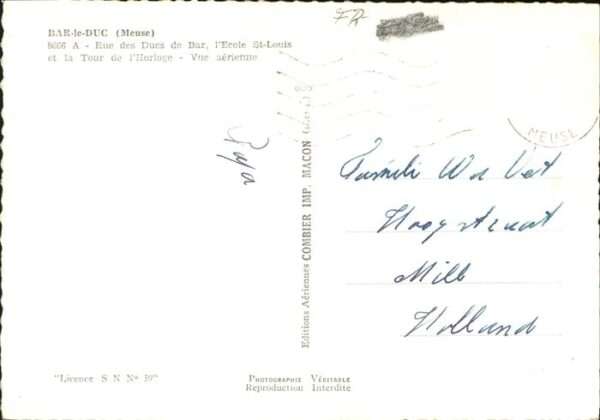 BAR-le-DUC (Meuse)
8666 A - Rue des Ducs de Bar, l'Ecole St-Louis
et la Tour de l'Horloge - Vue aérienne
FR
MEUSE
Papa
Editions Aériennes COMBIER IMP. MACON
Familie
Hoogstraat
Mill
Holland
"Licence S N N° 39"
PHOTOGRAPHIE VÉRITABLE
Reproduction Interdite